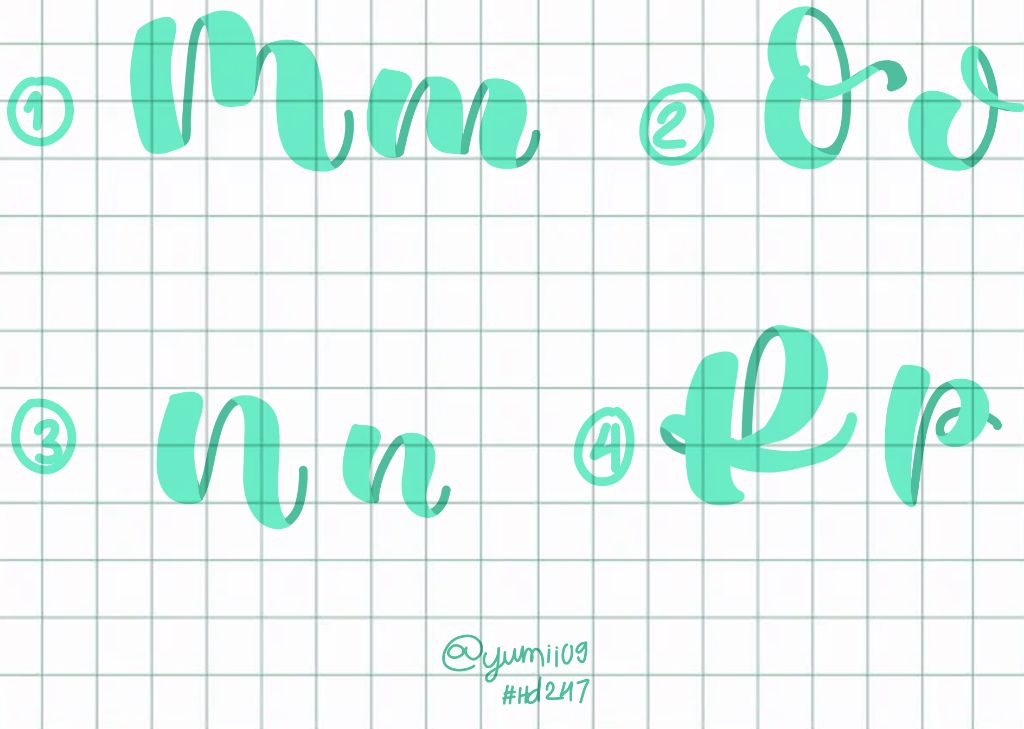 ① Mm
② Oo
③ Nn
④ Pp
@yumii09
#Hd2417